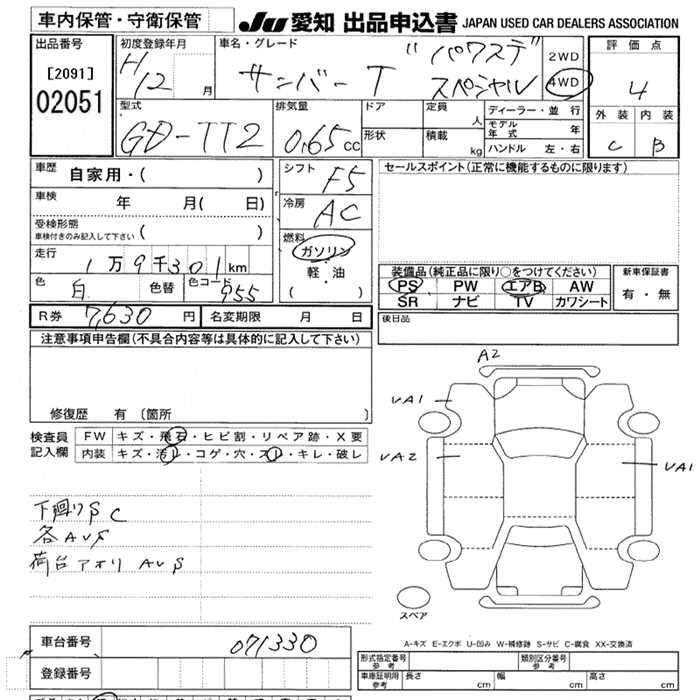 車内保管・守衛保管
JU 愛知 出品申込書 JAPAN USED CAR DEALERS ASSOCIATION
出品番号
[2091]
02051
初度登録年月
H12 月
車名・グレード
サンバー T "パワステ
スペシャル
2WD
4WD
評価点
4
外装 内装
C B
型式
GD-TT2
排気量
0.65 cc
ドア
形状
定員
人
積載
kg
ディーラー・並行
モデル年式 年
ハンドル 左・右
車歴
自家用・( )
車検
年 月( 日)
受検形態
車検付きのみ記入して下さい ( )
走行
1万9千301km
色
白
色替
色コード
955
シフト
F5
冷房
AC
燃料
ガソリン
軽・油
( )
セールスポイント(正常に機能するものに限ります)
装備品(純正品に限り○をつけてください)
PS PW エアB AW
SR ナビ TV カワシート
新車保証書
有・無
R券 7,630 円
名変期限 月 日
後日品
注意事項申告欄(不具合内容等は具体的に記入して下さい)
修復歴 有 〔箇所 〕
検査員
記入欄
FW キズ・飛石・ヒビ割・リペア跡・X要
内装 キズ・汚レ・コゲ・穴・スレ・キレ・破レ
下廻りS C
各AUS
荷台アオリ AUS
A2
UA1
UA2
UA1
スペア
A-キズ E-エクボ U-凹み W-補修跡 S-サビ C-腐食 XX-交換済
車台番号
071330
登録番号
形式指定番号
参考
類別区分番号
参考
車庫証明用
参考
長さ cm
幅 cm
高さ cm